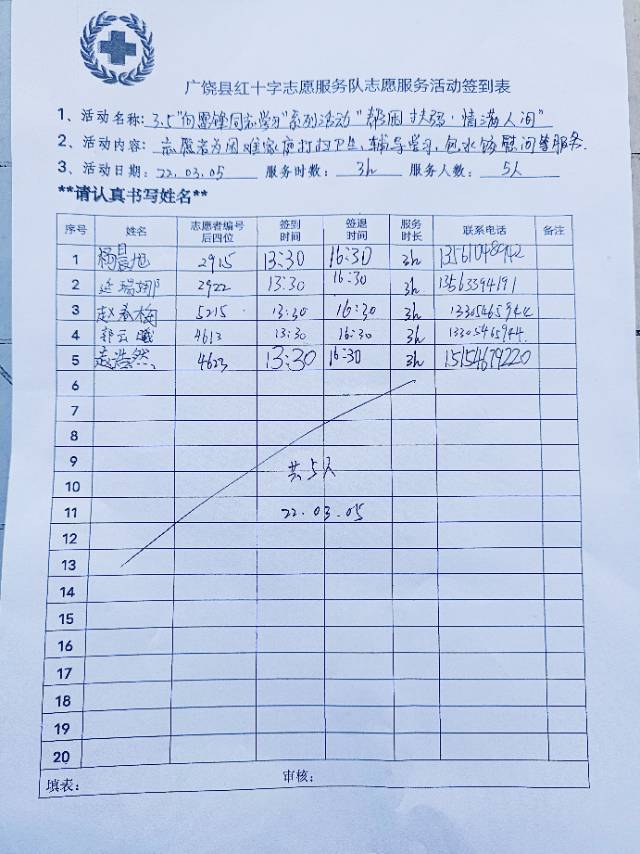 广饶县红十字志愿服务队志愿服务活动签到表
1、活动名称：3.5"向雷锋同志学习"系列活动"帮困扶弱·情满人间"
2、活动内容：志愿者为困难家庭打扫卫生，辅导学习，包水饺慰问等服务.
3、活动日期：22.03.05 服务时数：3h 服务人数：5人
**请认真书写姓名**
序号 姓名 志愿者编号后四位 签到时间 签退时间 服务时长 联系电话 备注
1 杨晨旭 2915 13:30 16:30 3h 13561048942
2 延瑞娜 2922 13:30 16:30 3h 13563394191
3 赵春梅 5215 13:30 16:30 3h 13305465944
4 郭云曦 4613 13:30 16:30 3h 13305465944
5 袁浩然 4623 13:30 16:30 3h 15154679220
6
7
8
9 共5人
10
11 22.03.05
12
13
14
15
16
17
18
19
20
填表： 审核：